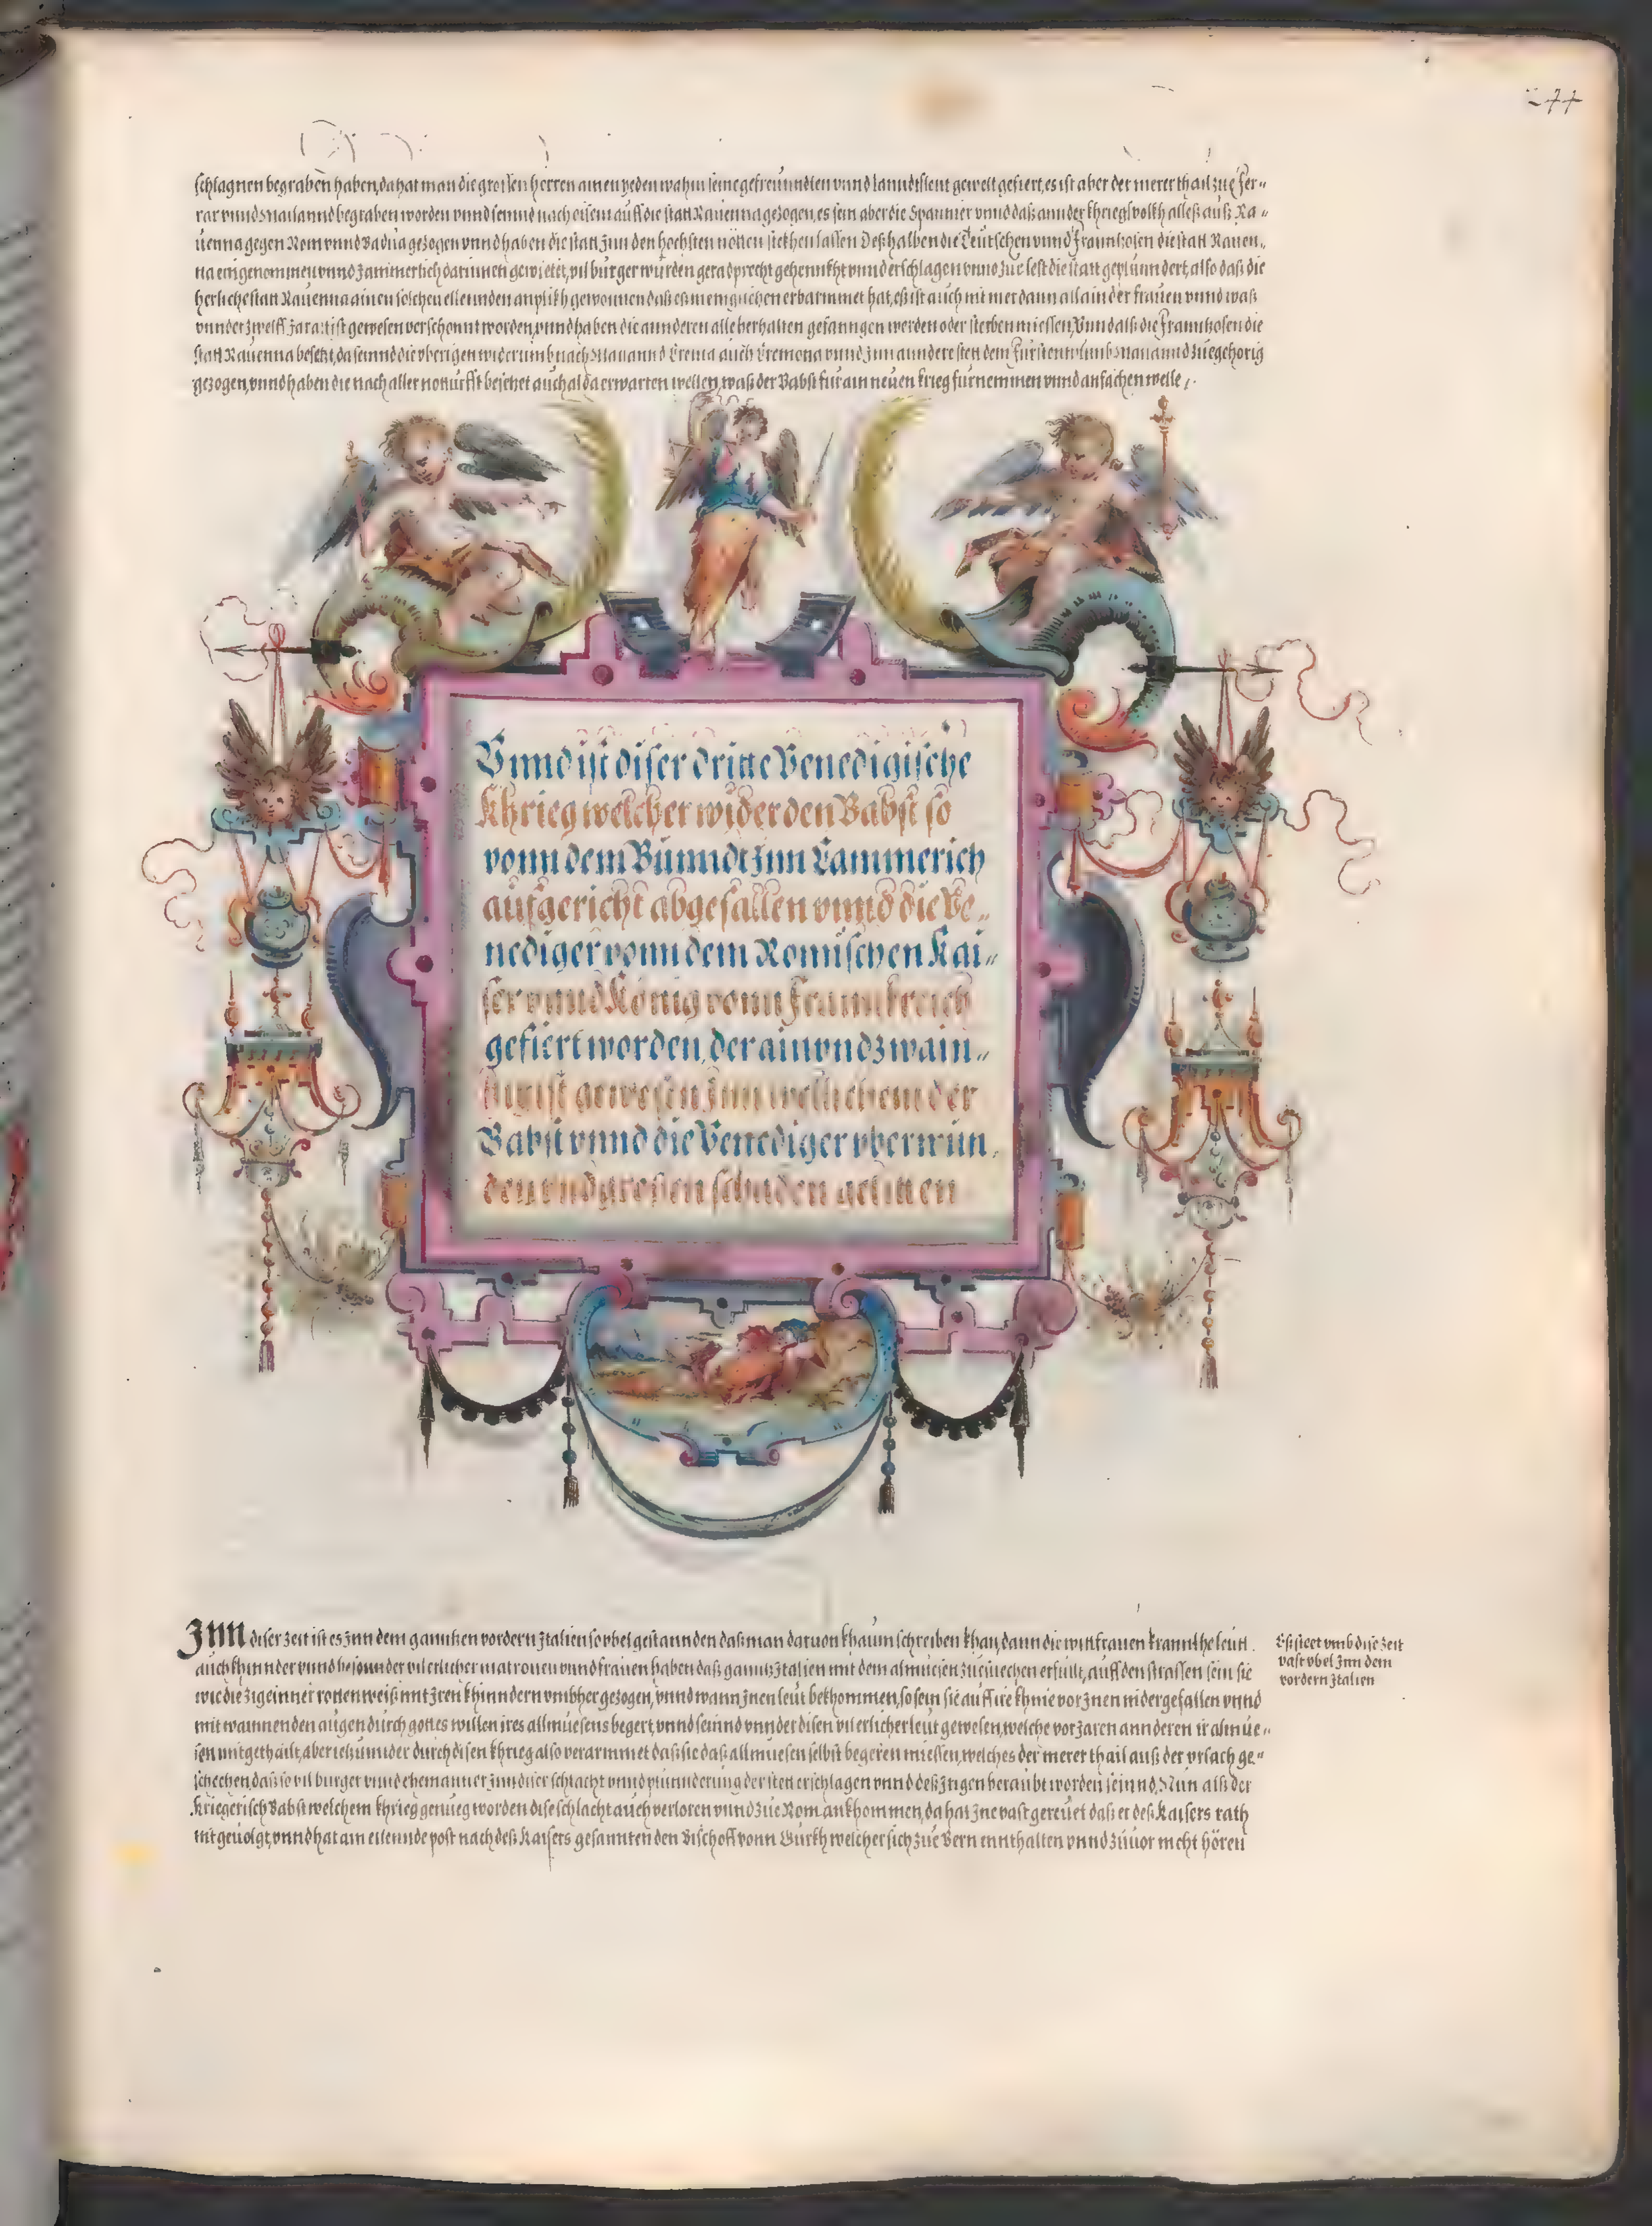 244
schlagnen begraben haben, da hat man die grossen herren ainen yeden wahin seine gefreunndten vnnd lanndtsleut gewelt gefiert, es ist aber der merer thail zue Fer-
rar vnnd Mailannd begraben worden vnnd seinnd nach disem auff die statt Rauenna gezogen, es sein aber die Spannier vnnd daß annder khriegsvolkh alleß auß Ra-
uenna gegen Rom vnnd Badua gezogen vnnd haben die statt Jnn den hochsten nötten stekhen lassen Deßhalben die Teutschen vnnd Frannkosen die statt Rauen-
na eingenommen vnnd Jammerlich darinnen gewietet, vil burger wurden geradprecht gehennkht vnnd erschlagen vnnd zue lest die statt geplünndert, also daß die
herliche statt Rauenna ainen solchen ellennden anplikh gewonnen daß eß meingklichen erbarmmet hat, eß ist auch nit mer dann allain der frauen vnnd waß
vnnder zwelff Jar alt ist gewesen verschonnt worden, vnnd haben die annderen alle herhalten gefanngen werden oder sterben miessen, Vnnd alß die Frannkosen die
statt Rauenna besetzt, da seinnd die vberigen widerumb nach Mayannd Crema auch Cremona vnnd Jnn anndere stett dem Fürstentumb Mayannd zuegehorig
gezogen, vnnd haben die nach aller notturfft besetzet auch alda erwarten wellen, waß der Babst fur ain neuen krieg furnemmen vnnd anfachen welle,
Vnnd ist diser dritte Venedigische
Khrieg welcher wider den Babst so
vonn dem Bünndt Jnn Cammerich
aufgericht abgefallen vnnd die Ve-
nediger vonn dem Romischen Kai-
ser vnnd König vonn Frannkreich
gefiert worden, der ainvndzwain-
tzigist gewesen Jnn wellichem der
Babst vnnd die Venediger vberwun,
den vnd grossen schaden gelitten
Jnn diser zeit ist es Jnn dem ganntzen vordern Jtalien so vbel gestannden daß man daruon khaum schreiben khan, dann die witfrauen krannkhe leüt
auch khinnder vnnd besonnder vil erlicher matronen vnnd frauen haben daß ganntz Jtalien mit dem almuesen zu suechen erfült, auff den strassen sein sie
wie die Zigeinner rottenweiß mit Jren khinndern vmbher gezogen, vnnd wann Jnen leut bekhommen, so sein sie auff ire khnie vor Jnen nidergefallen vnnd
mit wainnenden augen durch gottes willen ires allmuesens begert, vnnd seinnd vnnder disen vil erlicher leüt gewesen, welche vor Jaren annderen ir almue-
sen mitgethailt, aber ietzunnder durch disen khrieg also verarmmet daß sie daß allmuesen selbst begeren miessen, welches der merer thail auß der vrsach ge-
schechen, daß so vil burger vnnd ehemanner Jnn diser schlacht vnnd plünnderung der stett erschlagen vnnd deß Jrigen beraubt worden seinnd, Nun alß der
kriegerisch Babst welchem khrieg genueg worden dise schlacht auch verloren vnnd zue Rom ankhommen, da hat Jne vast gereuet daß er deß Kaisers rath
nit geuolgt, vnnd hat ain eilennde post nach deß Kaisers gesannten den Bischoff vonn Gurkh welcher sich zue Bern ennthalten vnnd zuuor nicht hören
Es steet vmb dise zeit
vast vbel Jnn dem
vordern Jtalien